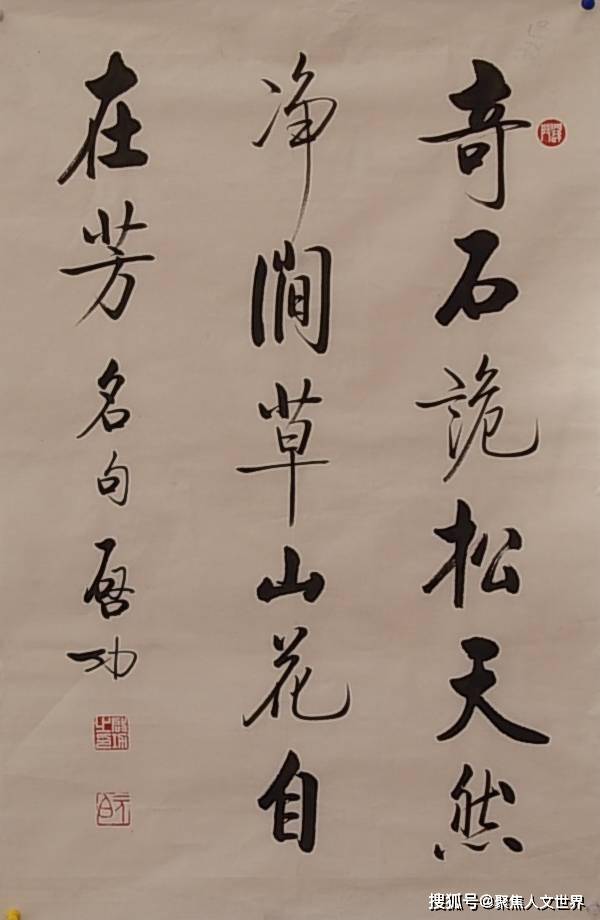 奇石詭松天然
净澗草山花自
在芳 名句 啓功
搜狐号@聚焦人文世界